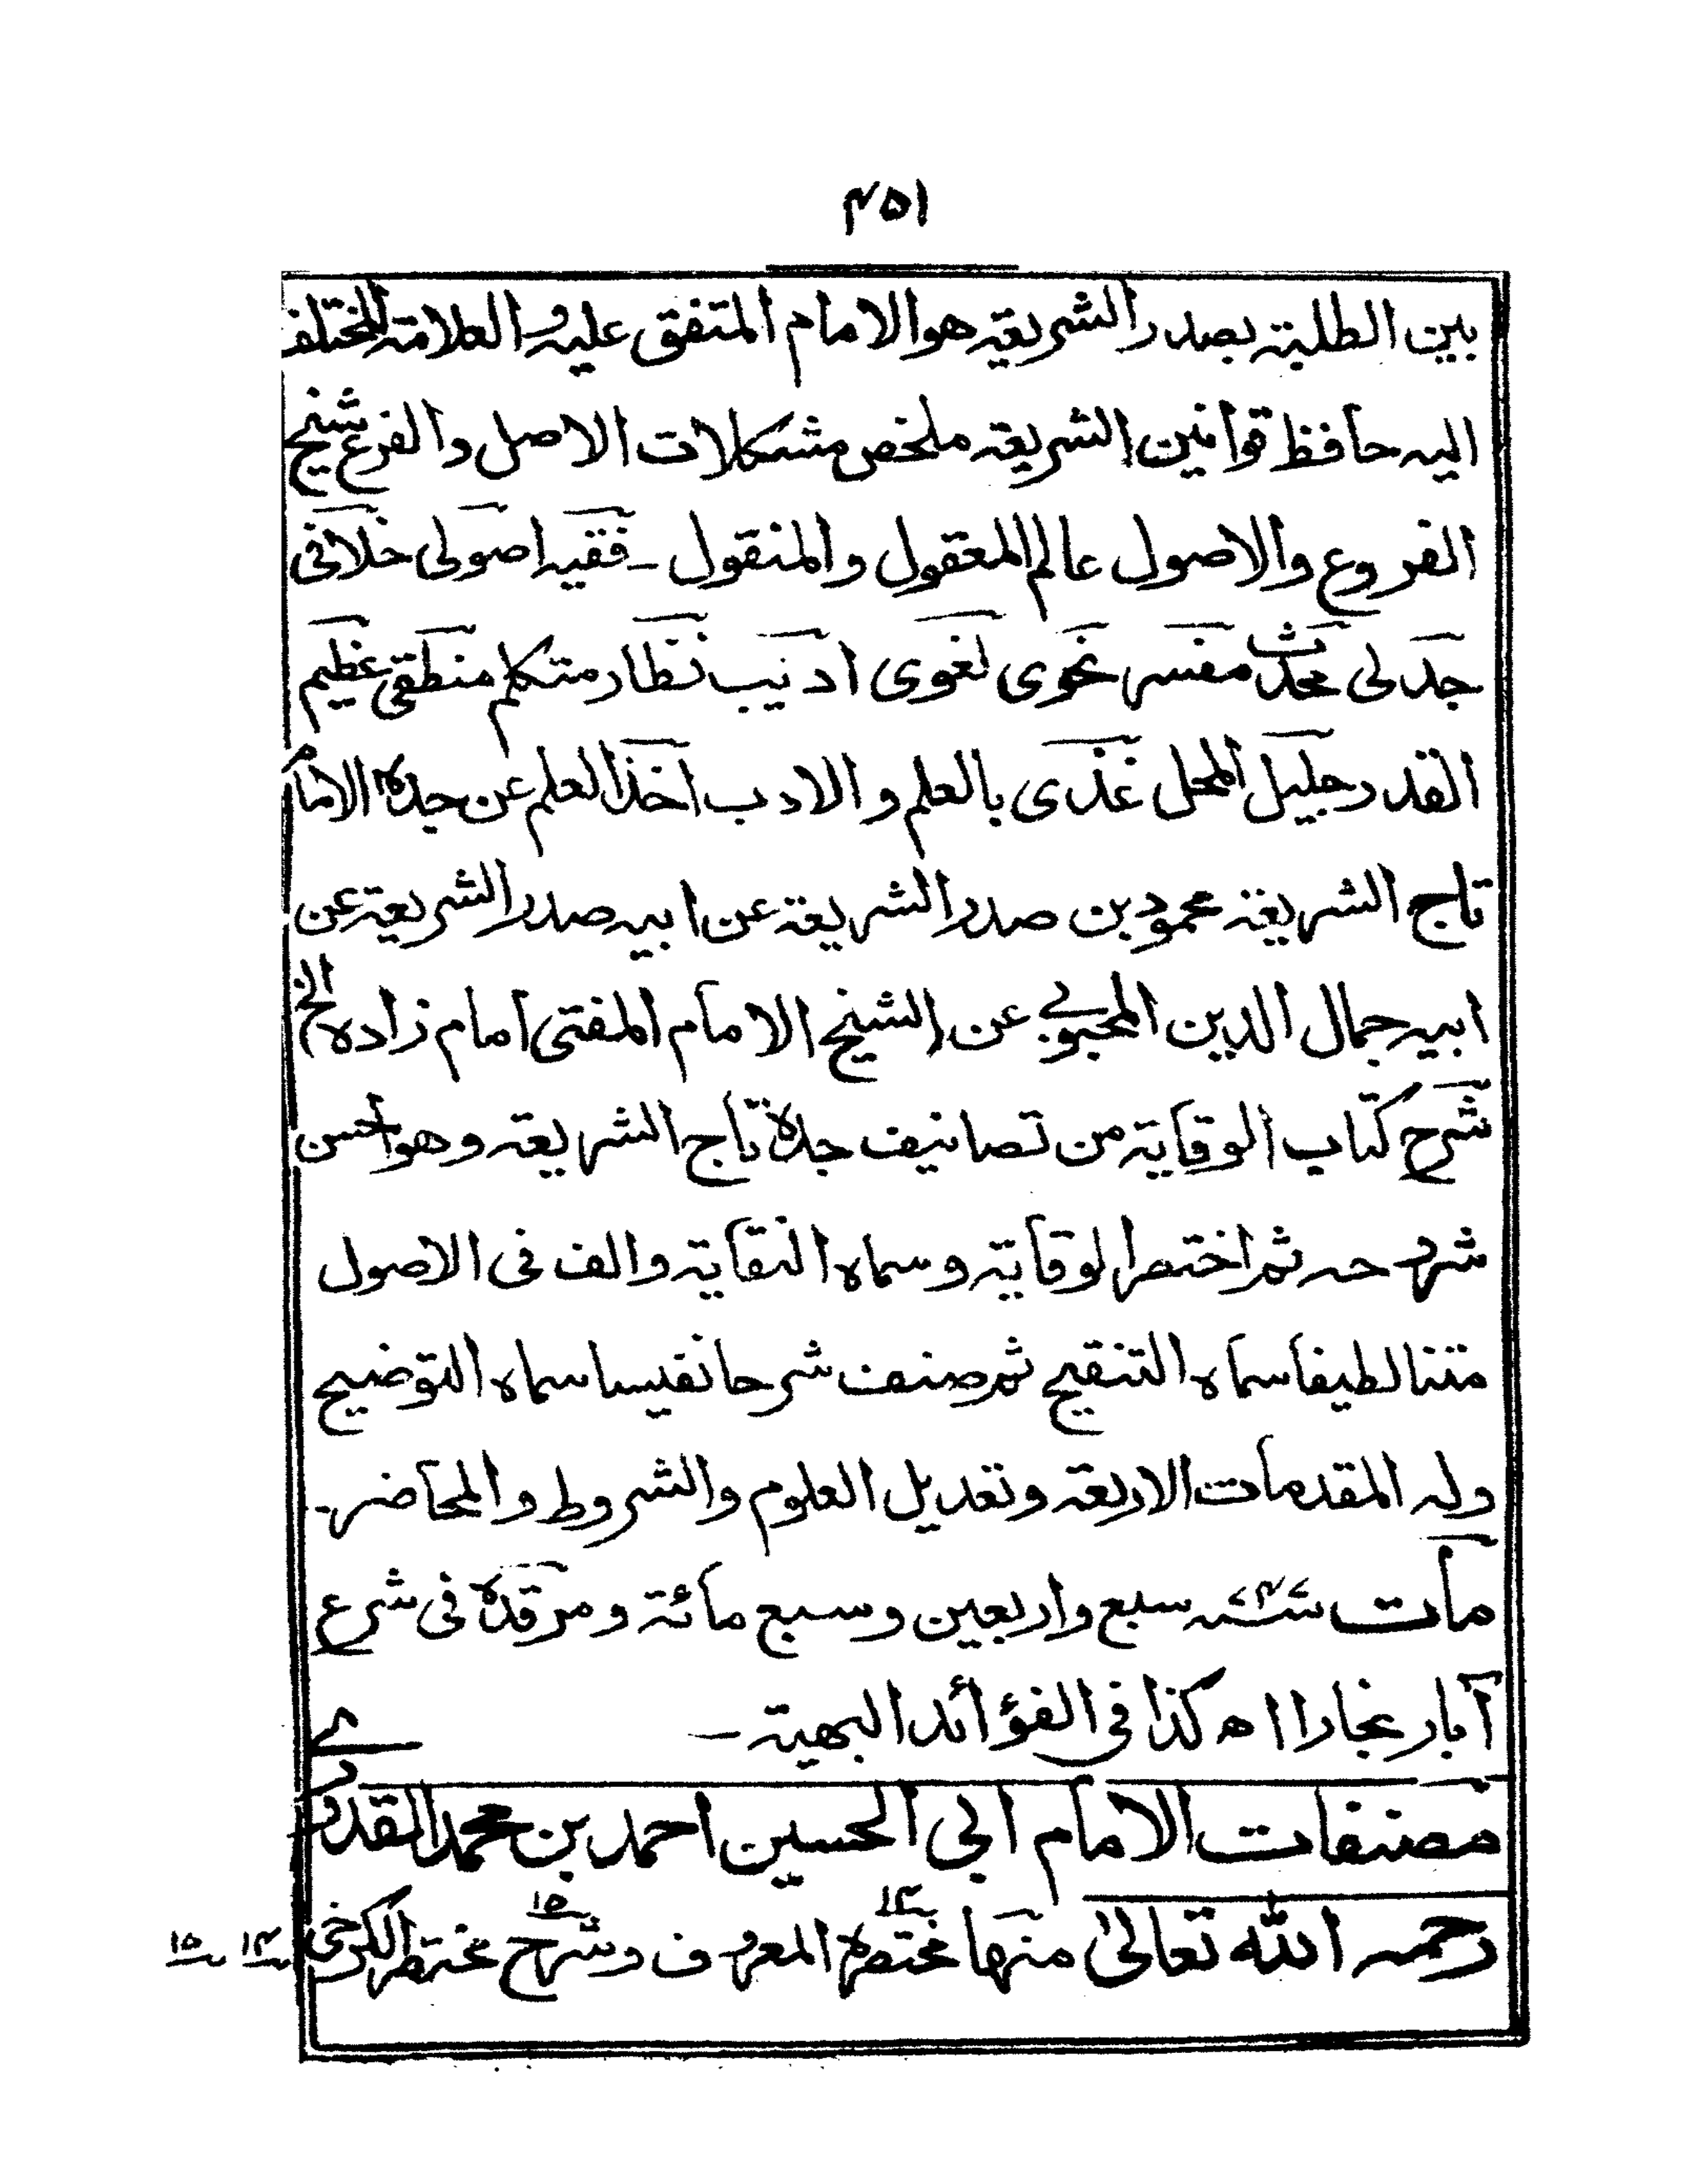 ۴۵۱
بين الطلبة بصدر الشريعة هو الامام المتفق عليه و العلامة المختلف
اليه حافظ قوانين الشريعة ملخص مشكلات الاصل و الفرع شيخ
الفروع والاصول عالم المعقول والمنقول ـ فقيه اصولى خلافى
جدلى محدث مفسر نحوى لغوى اديب نظار متكلم منطقى عظيم
القدر جليل المحل غذى بالعلم و الادب اخذ العلم عن جده الامام
تاج الشريعة محمود بن صدر الشريعة عن ابيه صدر الشريعة عن
ابيه جمال الدين المحبوبى عن (الشيخ الامام المفتى امام زاده الخ)
شرح كتاب الوقاية من تصانيف جده تاج الشريعة وهو احسن
شروحه ثم اختصر الوقاية وسماه النقاية والف فى الاصول
متنا لطيفا سماه التنقيح ثم صنف شرحا نفيسا سماه التوضيح
وله المقدمات الاربعة وتعديل العلوم والشروط والمحاضر ـ
مات سنة ۷۴۷ سبع واربعين وسبع مائة ومرقده فى شرع
آبار بخارا اه كذا فى الفوائد البهية ـ
مصنفات الامام ابى الحسين احمد بن محمد القدورى
رحمه الله تعالىٰ منها مختصره ۱۴ المعروف وشرح ۱۵ مختصر الكرخى ۱۴ ۱۵